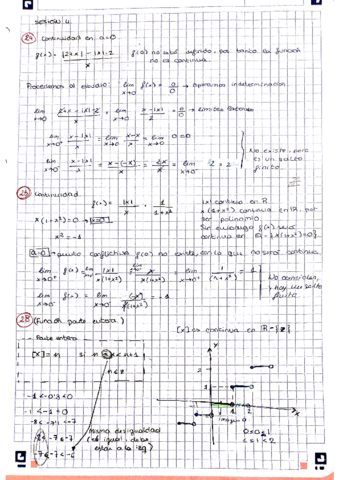 SESIÓN 4
24 Continuidad en a=0
f(x) = |2+x| - |x| - 2 / x
f(0) no está definido. Por tanto la función no es continua.
Procedemos al estudio: lim x→0 f(x) = 0/0 → Aparece indeterminación
lim x→0 2+x - |x| - 2 / x = lim x→0 x - |x| / x = 0/0 → límites laterales
lim x→0⁺ x - |x| / x = lim x→0⁺ x - x / x = lim x→0⁺ 0 = 0
lim x→0⁻ x - |x| / x = x - (-x) / x = 2x / x = lim x→0⁻ 2 = 2
No existe, pero
es un salto
finito
Continuidad
f(x) = |x| / x · 1 / 1+x²
|x| continua en R
x(1+x²)=0 → x=0
x(1+x²) continua en R, por
ser polinomio
x² = -1
Sin embargo f(x) será
continua en R - {x(1+x²)=0}
a=0 → punto conflictivo f(0) no existe, en la que no será continua
lim x→0⁺ f(x) = lim x→0⁺ |x| / x(1+x²) = lim x→0⁺ x / x(1+x²) = lim x→0⁺ 1 / (1+x²) = 1
lim x→0⁻ f(x) = lim x→0⁻ (-x) / x(1+x²) = -1
No coinciden,
hay un salto
finito
28 (Función parte entera)
[x] es continua en R - {z}
Parte entera
[x] = n si n ≤ x < n+1
n ∈ z
y
2
1
1 2
x
-1 < -0'3 < 0
-1 < -1 = 0
-8 < -7'1 < -7
-8 < -7 ≤ -7
-7 ≤ -7 < -6
Misma desigualdad
(el igual debe
estar a la izq)
imagen 0
0 ≤ 0 ≤ 1